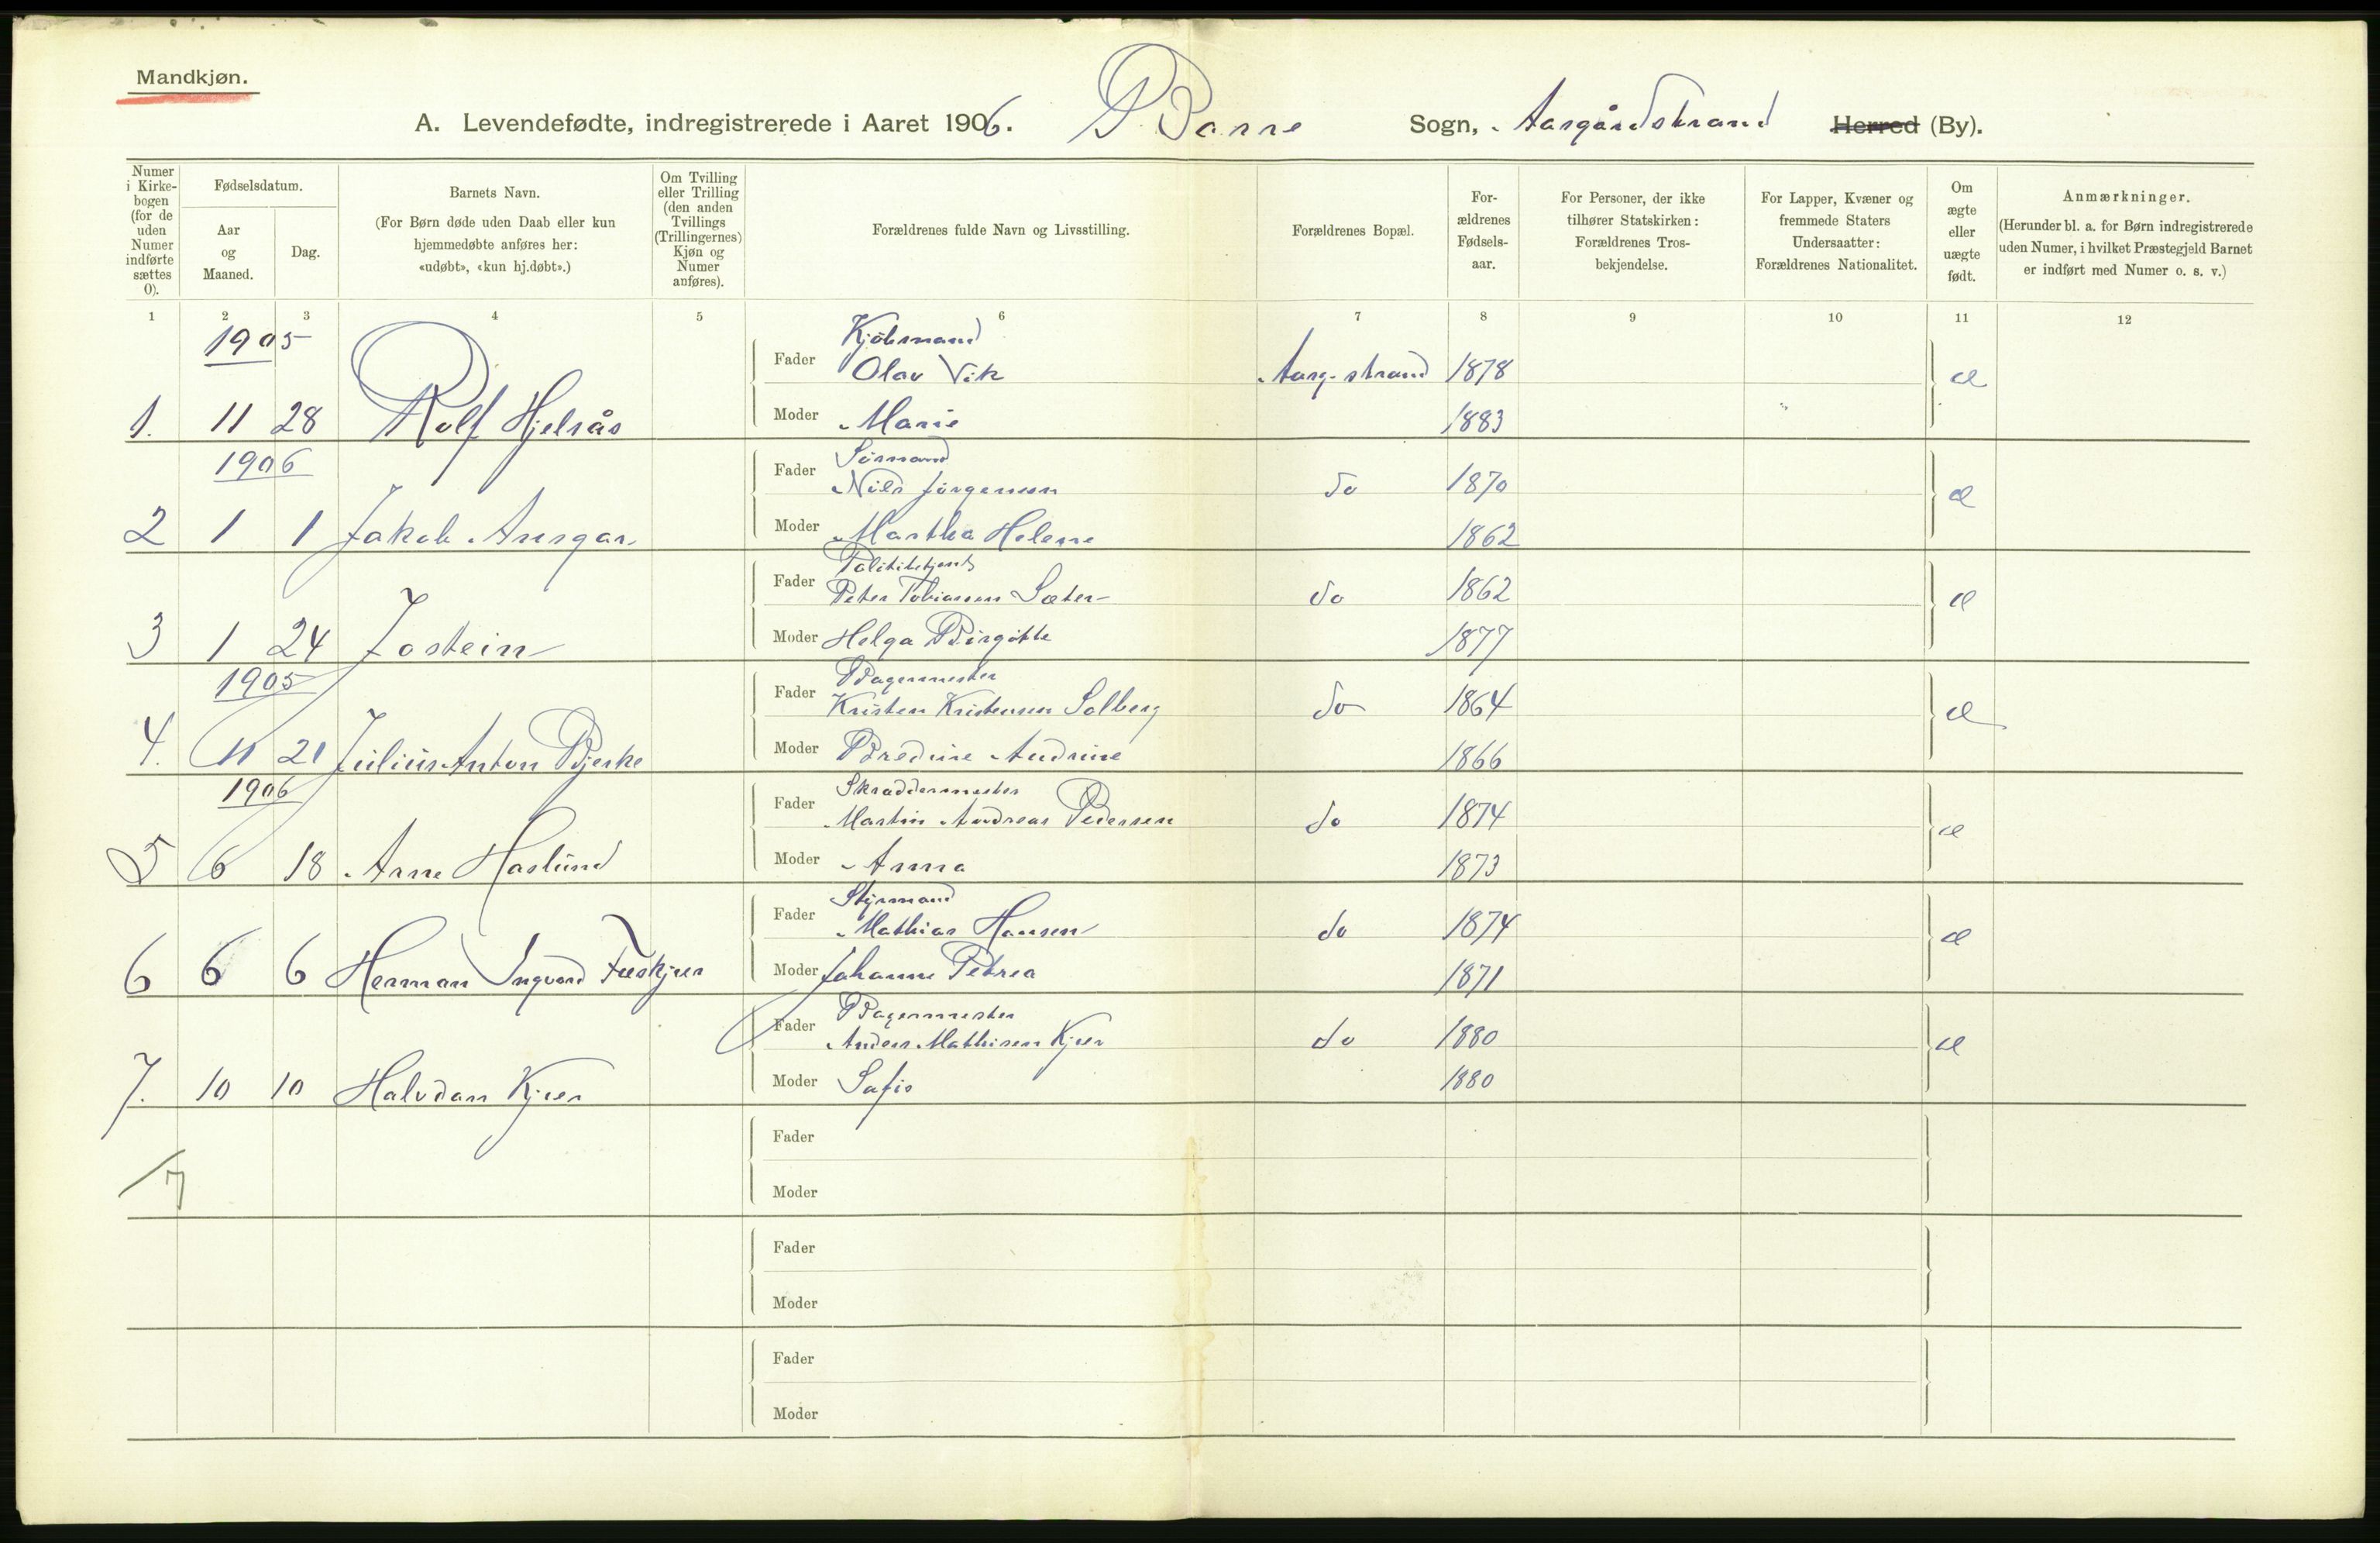 Mandkjøn.
A. Levendefødte, indregistrerede i Aaret 1906. Borre Sogn, Aasgårdstrand Herred (By).
Numer i Kirkebogen (for de uden Numer indførte sættes 0).
Fødselsdatum.
Aar og Maaned.
Dag.
Barnets Navn.
(For Børn døde uden Daab eller kun hjemmedøbte anføres her: «udøbt», «kun hj.døbt».)
Om Tvilling eller Trilling (den anden Tvillings (Trillingernes) Kjøn og Numer anføres).
Forældrenes fulde Navn og Livsstilling.
Forældrenes Bopæl.
Forældrenes Fødselsaar.
For Personer, der ikke tilhører Statskirken: Forældrenes Trosbekjendelse.
For Lapper, Kvæner og fremmede Staters Undersaatter: Forældrenes Nationalitet.
Om ægte eller uægte født.
Anmærkninger.
(Herunder bl. a. for Børn indregistrerede uden Numer, i hvilket Præstegjeld Barnet er indført med Numer o. s. v.)
1 2 3 4 5 6 7 8 9 10 11 12
1905 Kjöbmand
Fader Olav Vik Aasg.strand 1878 æ
1. 11 28 Rolf Hjelsås Moder Marie 1883
1906 Sömand
Fader Nils Jörgensen do 1870 æ
2 1 1 Jakob Ansgar Moder Martha Helene 1862
Politibetjent
Fader Peter Tobiassen Sæter do 1862 æ
3 1 24 Jostein Moder Helga Birgitte 1877
1905 Bagermester
Fader Kristen Kristensen Solberg do 1864 æ
4. 11 21 Julius Anton Bjerke Moder Bredine Andrine 1866
1906 Skræddermester
Fader Martin Andreas Pedersen do 1874 æ
5 6 18 Arne Haslund Moder Anna 1873
Styrmand
Fader Mathias Hansen do 1874 æ
6 6 6 Herman Ingvard Moder Johanne Petrea 1871
Bagermester
Fader Anders Mathisen Kjær do 1880 æ
7. 10 10 Halvdan Kjær Moder Sofie 1880
Fader
7
Moder
Fader
Moder
Fader
Moder